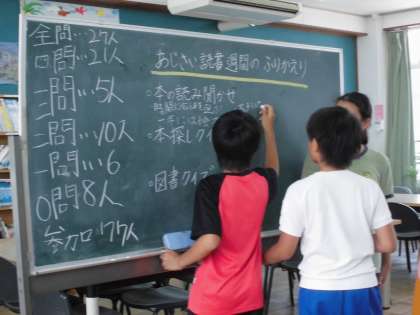 全問…27人
四問…21人
三問…5人
二問…10人
一問…6
0問8人
参加77人
あじさい読書週間のふりかえり
・本の読み聞かせ
・本探しクイ
・図書クイズ